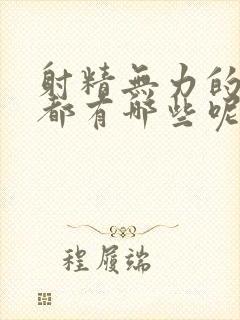 射精無力的
都有哪些呢
程履端